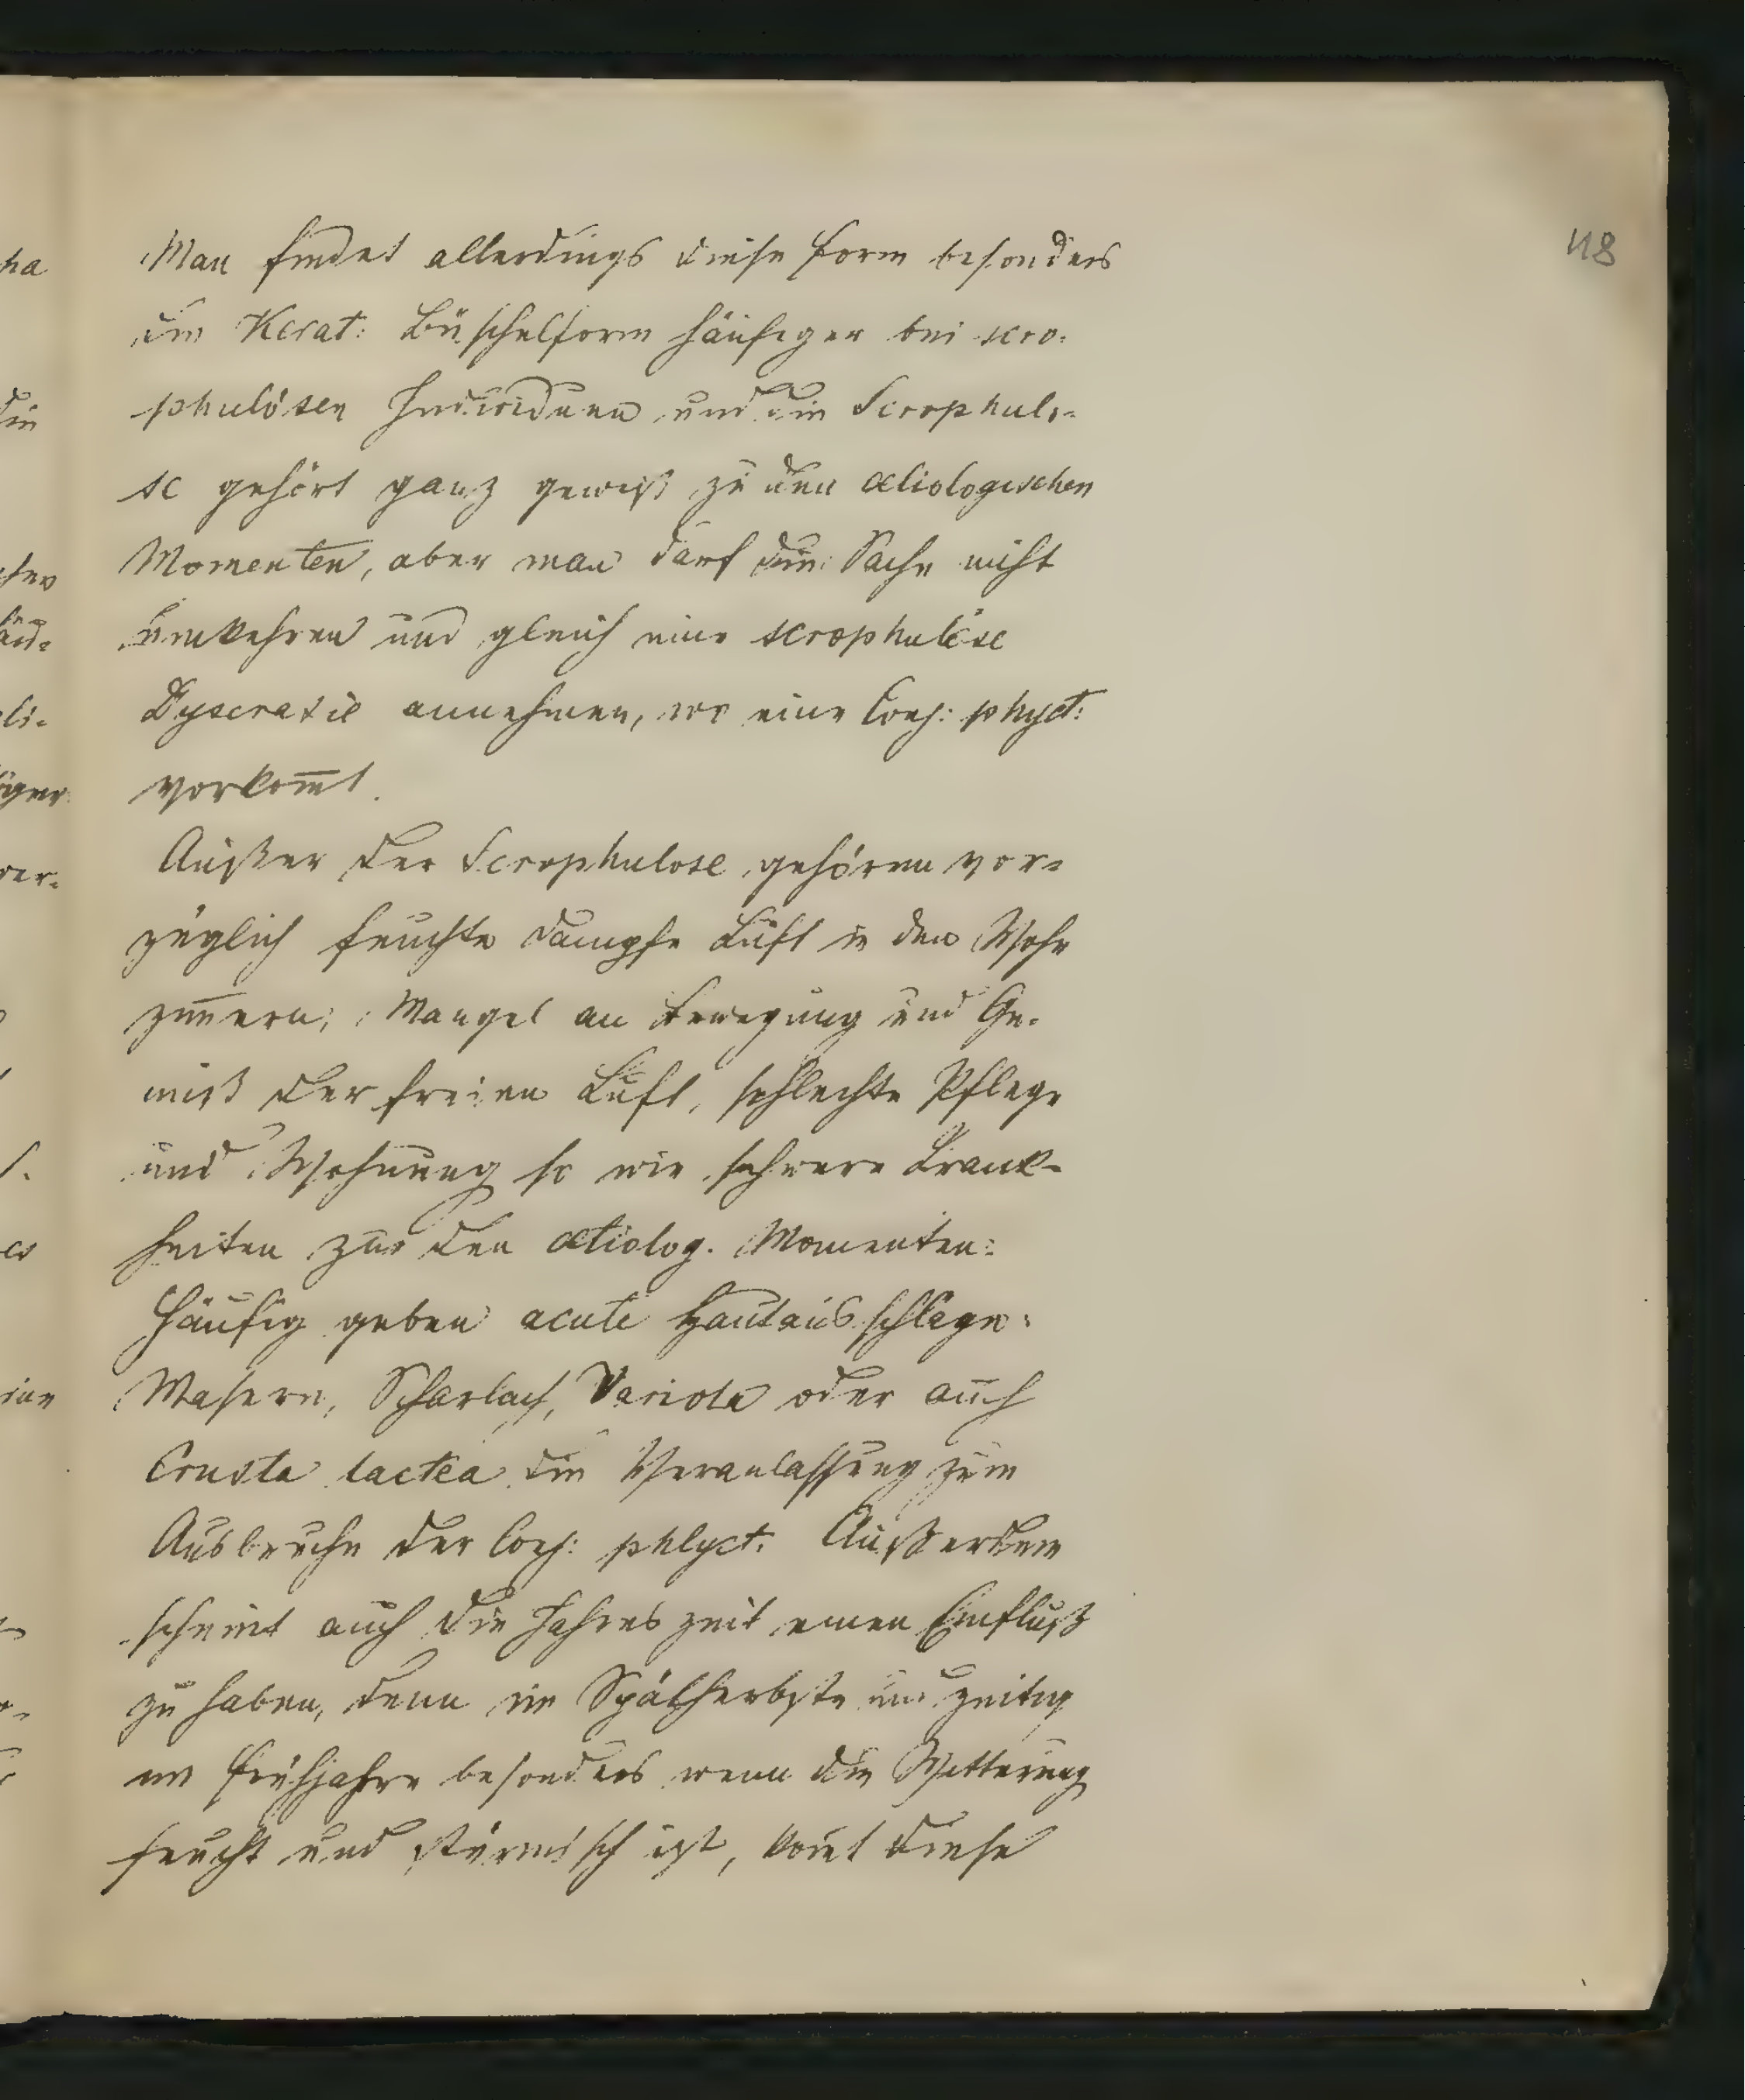 48
Man findet allerdings diese Form besonders
die Kerat: Büschelform häufiger bei scro-
phulösen Individuen und die Scrophulo-
se gehört ganz gewiß zu den ætiologischen
Momenten, aber man darf die Sache nicht
umkehren und gleich eine scrophulöse
Dyscrasie annehmen, wo eine Conj: phyct:
vorkom̅t.
Außer der Scrophulose gehören vor-
züglich feuchte dumpfe Luft in den Wohn
zim̅ern, Mangel an Bewegung und Ge-
nuß der freien Luft, schlechte Pflege
und Wohnung so wie schwere Krank-
heiten zu den ætiolog. Momenten:
Häufig geben acute Hautausschläge:
Masern, Scharlach, Variola oder auch
Crusta lactea die Veranlassung zum
Ausbruche der Conj: phlyct. Außerdem
scheint auch die Jahreszeit einen Einfluß
zu haben, denn im Spätherbste und zeitig
im Frühjahre besonders wenn die Witterung
feucht und stürmisch ist, kom̅t diese